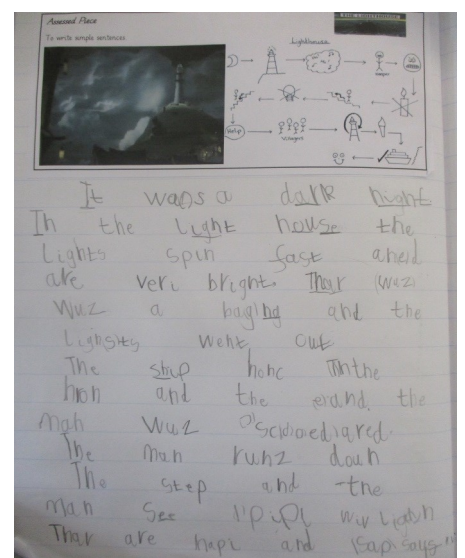 Assessed Piece
To write simple sentences
Lighthouse
help
villagers
It was a dark night
In the light house the
Lights spin fast and
are veri bright. Thar (wuz)
wuz a baging and the
Lights went out
The ship honc
hron and the the
man wuz
The man runz doun
The step and the
man See pipl wiv
Thar are hapi and